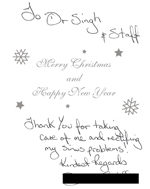 To Dr Singh
& Staff
Merry Christmas
and
Happy New Year
Thank You for taking
care of me and resolving
my sinus problems
Kindest Regards